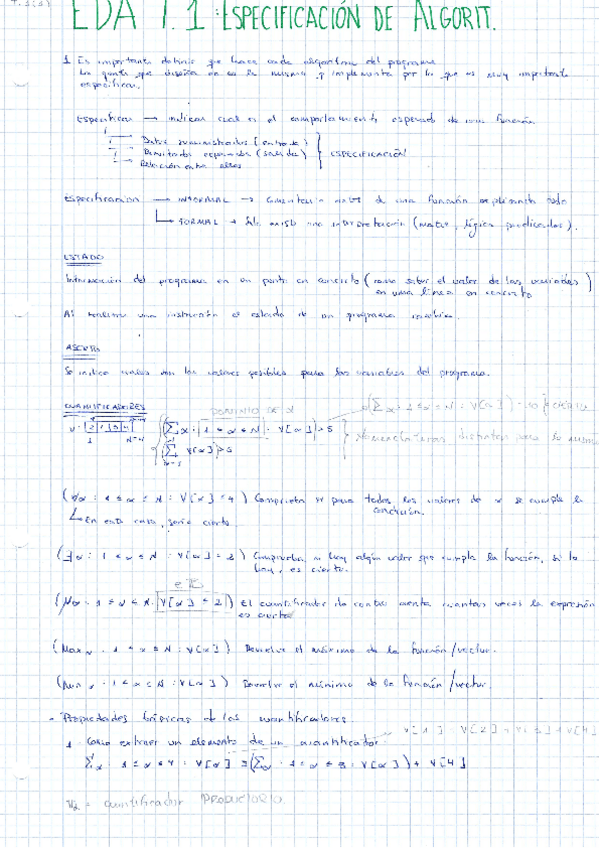 EDA T.1: ESPECIFICACIÓN DE ALGORIT.
1 Es importante definir que hace cada algoritmo del programa
La gente que diseña no es la misma q implementa por lo que es muy importante
especificar.
Especificar → indicar cual es el comportamiento esperado de una función
Datos suministrados (entrada)
Resultados esperados (salida) } ESPECIFICACIÓN
Relación entre ellos
Especificación → INFORMAL → Comentario de una función explicando todo
FORMAL → Sólo existe una interpretación (matem, lógica predicados).
ESTADO
Información del programa en un punto en concreto (como saber el valor de las variables)
en una línea en concreto
Al realizar una instrucción el estado de un programa cambia.
ASERTO
Se indica cuales son los valores posibles para las variables del programa.
CUANTIFICADORES
DOMINIO DE α
(Σα : 1 ≤ α ≤ N : V[α]) > 5
Σ V[α] > 5
Nomenclaturas distintas para lo mismo
(∀α : 1 ≤ α ≤ N : V[α] < 4) Comprueba si para todos los valores de α se cumple la
condición.
En este caso, sería cierto
(∃α : 1 ≤ α ≤ N : V[α] = 2) Comprueba si hay algún valor que cumple la función, si lo
hay, es cierto.
(Nα : 1 ≤ α ≤ N : V[α] = 2) El cuantificador de conteo cuenta cuantas veces la expresión
es cierta
(Max α : 1 ≤ α ≤ N : V[α]) Devuelve el máximo de la función/vector.
(Min α : 1 ≤ α ≤ N : V[α]) Devuelve el mínimo de la función/vector.
- Propiedades básicas de los cuantificadores
V[1] + V[2] + V[3] + V[4]
1. Como extraer un elemento de un cuantificador
Σα : 1 ≤ α ≤ 4 : V[α] ≡ (Σα : 1 ≤ α ≤ 3 : V[α]) + V[4]
= cuantificador PRODUCTORIO.